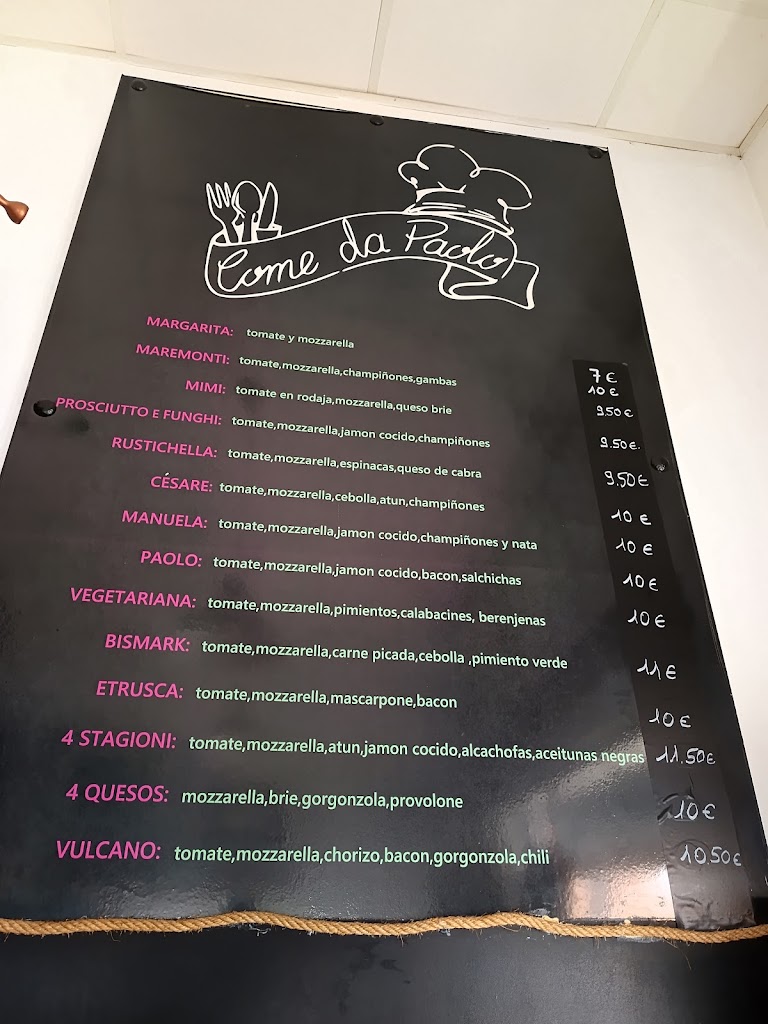 Come da Paolo
MARGARITA: tomate y mozzarella 7€
MAREMONTI: tomate,mozzarella,champiñones,gambas 10€
MIMI: tomate en rodaja,mozzarella,queso brie 9.50€
PROSCIUTTO E FUNGHI: tomate,mozzarella,jamon cocido,champiñones 9.50€.
RUSTICHELLA: tomate,mozzarella,espinacas,queso de cabra 9.50€
CÉSARE: tomate,mozzarella,cebolla,atun,champiñones 10€
MANUELA: tomate,mozzarella,jamon cocido,champiñones y nata 10€
PAOLO: tomate,mozzarella,jamon cocido,bacon,salchichas 10€
VEGETARIANA: tomate,mozzarella,pimientos,calabacines, berenjenas 10€
BISMARK: tomate,mozzarella,carne picada,cebolla ,pimiento verde 11€
ETRUSCA: tomate,mozzarella,mascarpone,bacon 10€
4 STAGIONI: tomate,mozzarella,atun,jamon cocido,alcachofas,aceitunas negras 11.50€
4 QUESOS: mozzarella,brie,gorgonzola,provolone 10€
VULCANO: tomate,mozzarella,chorizo,bacon,gorgonzola,chili 10,50€